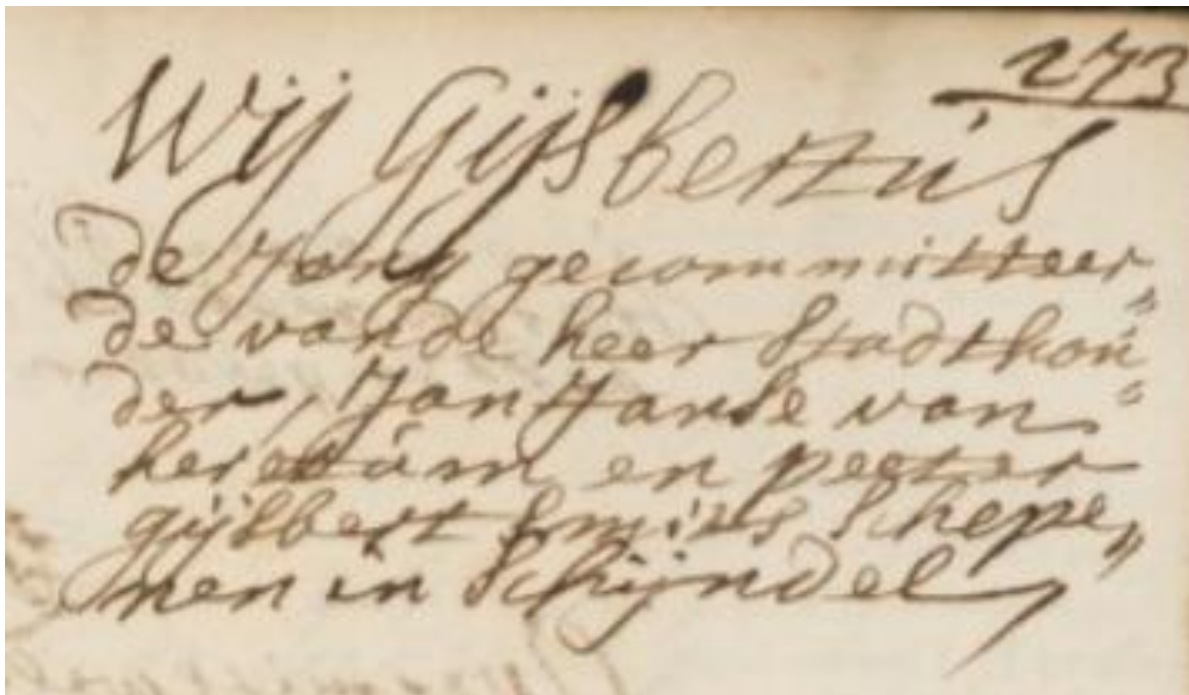 273
Wij Gijsbertus
de Jong gecommitteer„
de vande heer Stadthou„
der, Jan Janse van
heretúm en peeter
gijsbert Smits Schepe„
nen in Schijndel,